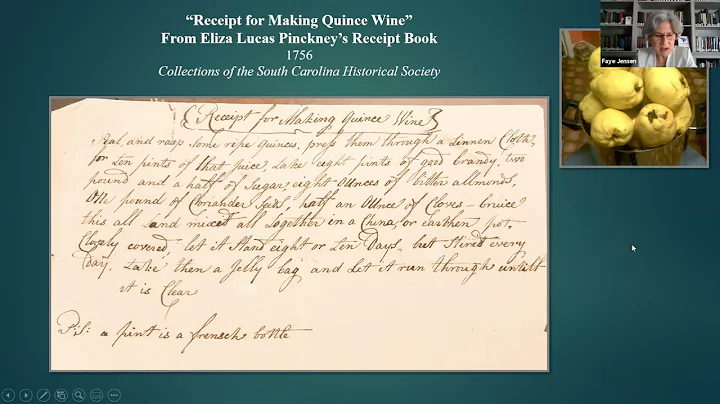 “Receipt for Making Quince Wine”
From Eliza Lucas Pinckney’s Receipt Book
1756
Collections of the South Carolina Historical Society
Faye Jensen
Receipt for Making Quince Wine
Peal, and rasp some ripe quinces, press them through a Linnen Cloth,
for ten pints of that juice, take eight pints of good brandy, two
pound and a half of Sugar eight ounces of bitter allmonds,
One pound of Coriander Seeds, half an Ounce of Cloves – bruice
this all and mixet all together in a China, or earthen pot,
Closely covered, let it stand eight or ten Days, but Stired every
Day, take then a Jelly bag, and let it run through untill
it is Clear
P:S: a pint is a frensch bottle